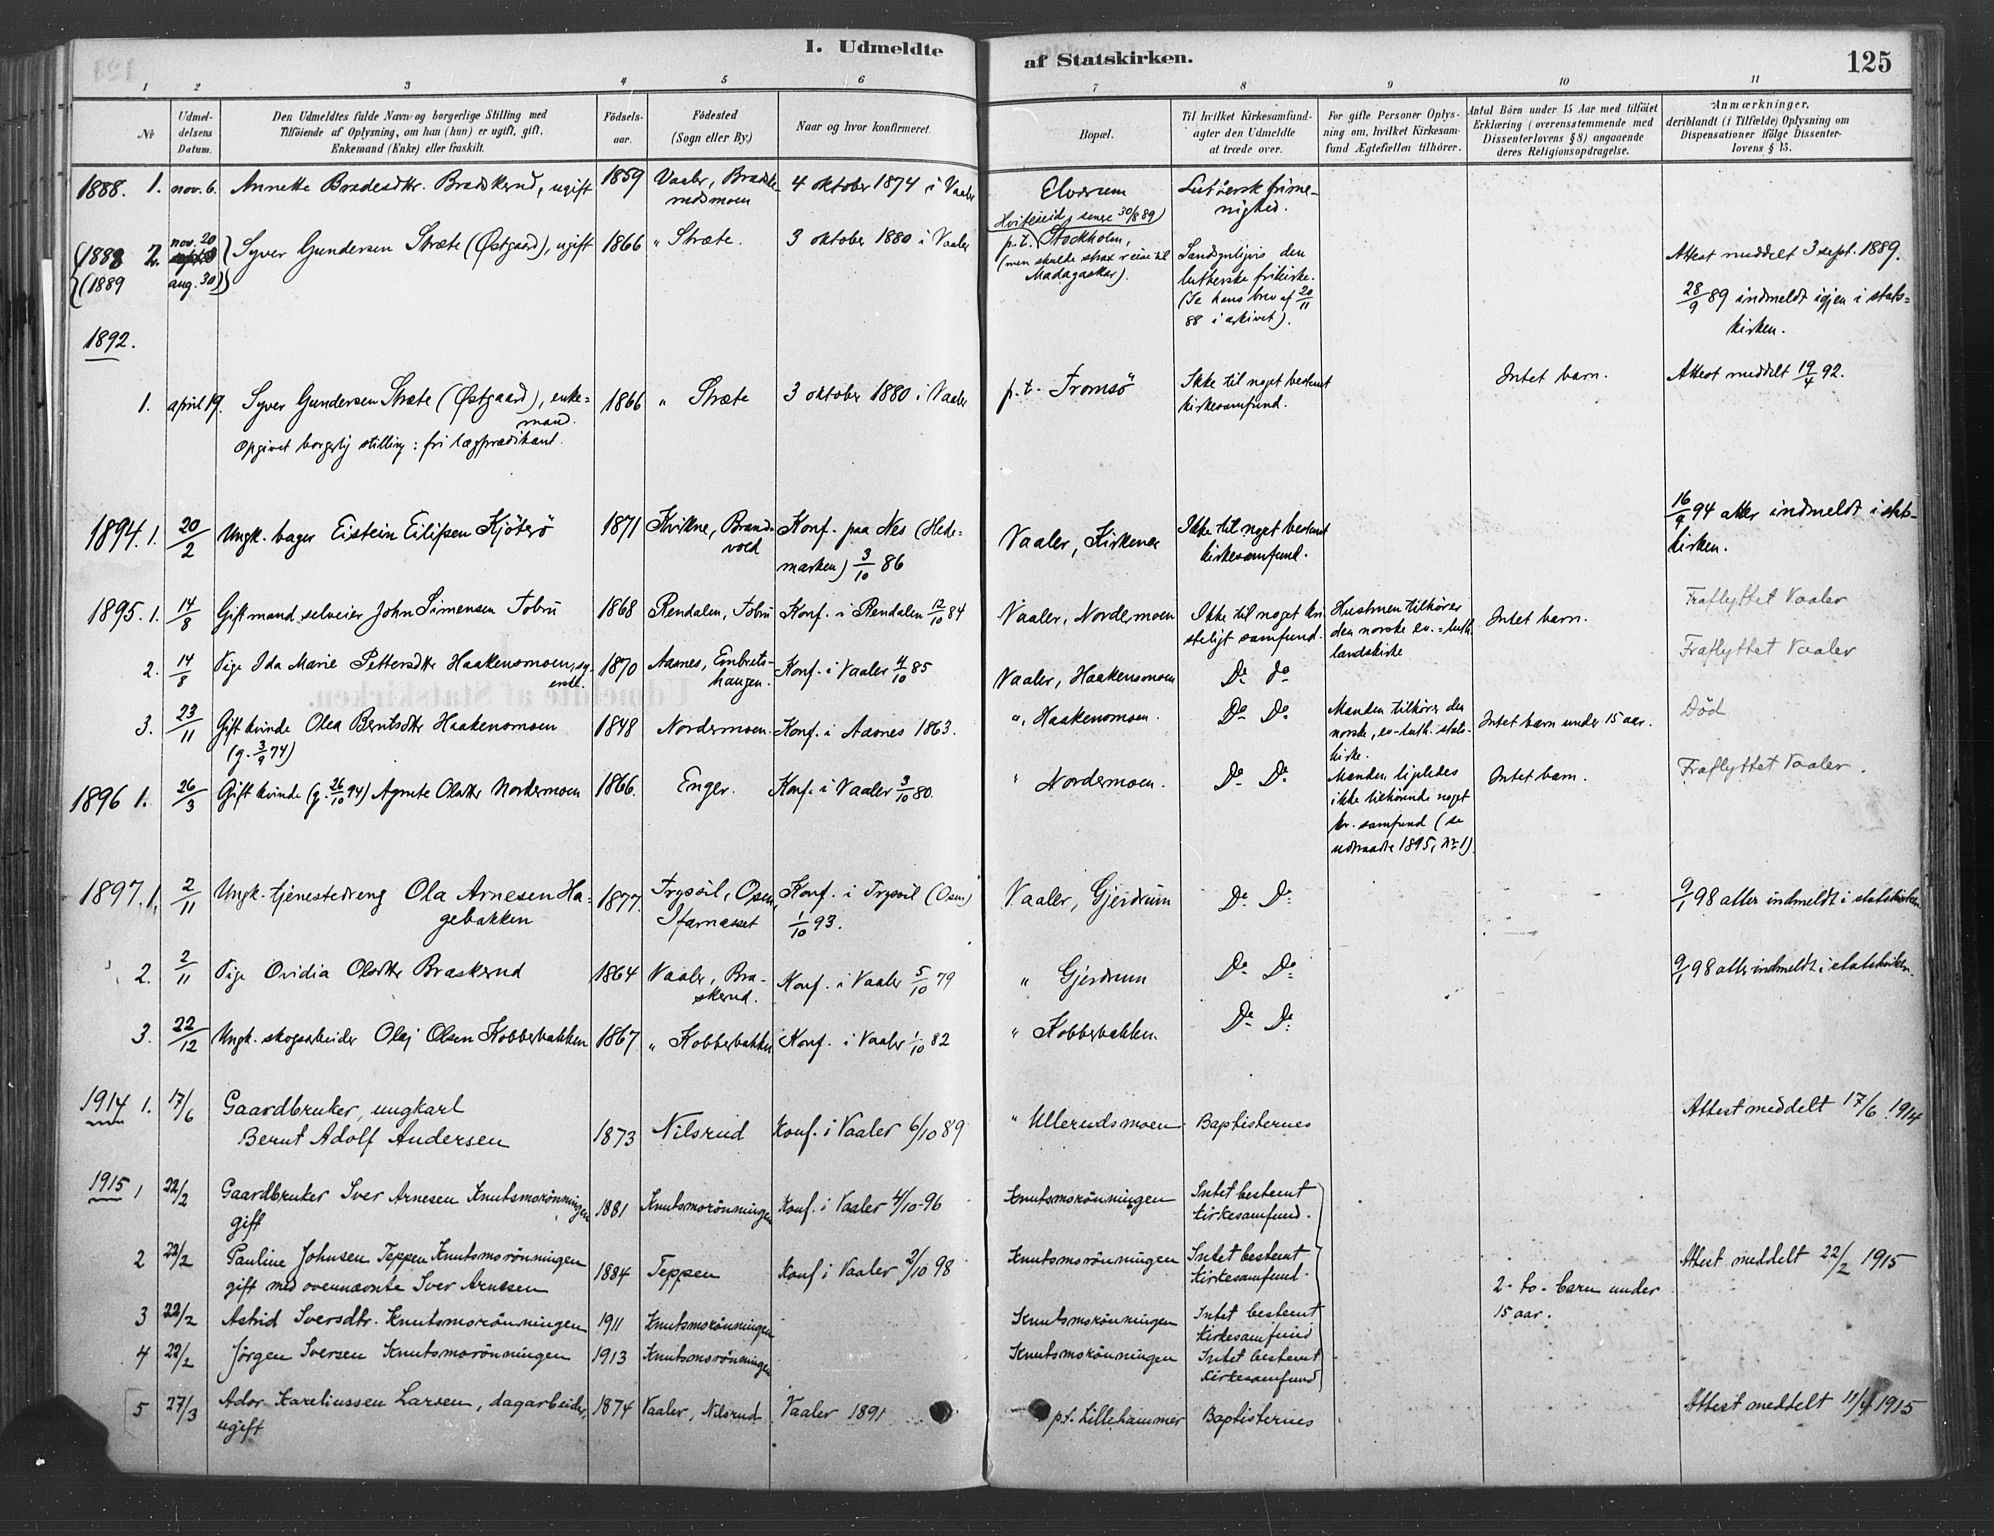 I. Udmeldte af Statskirken. 125
1 2 3 4 5 6 7 8 9 10 11
No
Udmeldelsens Datum.
Den Udmeldtes fulde Navn og borgerlige Stilling med
Tilföiende af Oplysning, om han (hun) er ugift, gift,
Enkemand (Enke) eller fraskilt.
Födselsaar.
Födested
(Sogn eller By.)
Naar og hvor konfirmeret.
Bopæl.
Til hvilket Kirkesamfund-
agter den Udmeldte
at træde over.
For gifte Personer Oplys-
ning om, hvilket Kirkesam-
fund Ægtefællen tilhörer.
Antal Börn under 15 Aar med tilföiet
Erklæring (overensstemmende med
Dissenterlovens § 8) angaaende
deres Religionsopdragelse.
Anmærkninger,
deriblandt (i Tilfælde) Oplysning om
Dispensationer ifölge Dissenter-
lovens § 15.
1888. 1. nov. 6. Annette Bradesdtr. Bradskerud, ugift 1859 Vaaler, Braske-
rudsmoen 4 oktober 1874 i Vaaler Elverum Lutersk frime-
nighed.
(1888 2. nov. 20 Syver Gundersen Stræte (Østgaard), ugift 1866 " Stræte. 3 oktober 1880 i Vaaler
(1889 aug. 30)
Hviteseid, senge 30/8 89)
p.t. Stockholm,
(men skulde strax reise til
Madagaskar).
Sandsynligvis den
lutherske frikirke.
(Se hans brev af 20/11
88 i arkivet).
Attest meddelt 3 sept. 1889.
28/9 89 indmeldt igjen i stats-
kirken.
1892.
1. april 19. Syver Gundersen Stræte (Østgaard), enke-
mand.
Opgivet borgerlig stilling: fri lægprædikant.
1866 " Stræte 3 oktober 1880 i Vaaler p.t. Tromsö Ikke til noget bestemt
kirkesamfund. Intet barn. Attest meddelt 19/4 92.
1894. 1. 20/2 Ungk. bager Eistein Eilifsen Kjöterö 1871 Kvikne, Brand-
vold Konf. paa Nes (Hede-
marken) 3/10 86 Vaaler, Kirkenær Ikke til noget bestemt
kirkesamfund. 16/9 94 atter indmeldt i stats-
kirken.
1895. 1. 14/8 Gift mand, selveier John Simensen Tobru 1868 Rendalen, Tobru Konf. i Rendalen 12/10 84 Vaaler, Nordermoen Ikke til noget kri-
steligt samfund. Hustruen tilhører
den norske ev.-luth.
landskirke Intet barn. Fraflyttet Vaaler
2. 14/8 Pige Ida Marie Pettersdtr Haakensmoen, 1870 Aasnes, Embrets-
haugen. Konf. i Vaaler 4/10 85 Vaaler, Haakensmoen Do do Fraflyttet Vaaler
3. 23/11 Gift kvinde Olea Berntsdtr Haakensmoen
(g. 3/9 74) 1848 Nordermoen. Konf. i Aasnes 1863. ", Haakensmoen. Do Do Manden tilhører den
norske, ev-luth. stats-
kirke. Intet barn under 15 aar. Död
1896 1. 26/3 Gift kvinde (g. 26/10 94) Agnete Olsdtr Nordermoen 1866. Enger. Konf. i Vaaler 3/10 80. " Nordermoen. Do Do Manden ligeledes
ikke tilhörende noget
kr. samfund (se
udtraadte 1895, No 1). Intet barn. Fraflyttet Vaaler.
1897. 1. 2/11 Ungk. tjenestedreng Ola Arnesen Ha-
gebakken 1877. Trysil, Osen,
Ifarnæsset Konf. i Trysil (Osen)
1/10 93. Vaaler, Gjerdrum Do Do 9/1 98 atter indmeldt i statskirken
2. 2/11 Pige Ovidia Olsdtr Braskerud 1864 Vaaler, Bra-
skerud. Konf. i Vaaler 5/10 79 " Gjerdrum Do Do 9/1 98 atter indmeldt i statskirken.
3. 22/12 Ungk. skogsarbeider Olaj Olsen Kobberbakken 1867 " Kobberbakken Konf. i Vaaler 1/10 82 " Kobberbakken. Do Do
1914 1. 17/6 Gaardbruker, ungkarl
Bernt Adolf Andersen 1873 Nilsrud Konf. i Vaaler 6/10 89 " Ullerudsmoen Baptisternes Attest meddelt 17/6 1914
1915 1 22/2 Gaardbruker Iver Arnesen Knutsmorönningen
gift 1881 Knutsmorönningen Konf. i Vaaler 4/10-96 Knutsmorönningen Intet bestemt
Kirkesamfund.
2 22/2 Pauline Johnsen Teppen Knutsmorönningen
gift med ovennævnte Iver Arnesen 1884 Teppen Konf i Vaaler 2/10 98 Knutsmorönningen Intet bestemt
Kirkesamfund. 2 - to - barn under
15 aar. Attest meddelt 22/2 1915
3 22/2 Astrid Iversdtr. Knutsmorönningen 1911 Knutsmorönningen Knutsmorönningen Intet bestemt
Kirkesamfund
4 22/2 Jörgen Iversen Knutsmorönningen 1913 Knutsmorönningen Knutsmorönningen Intet bestemt
Kirkesamfund
5 27/3 Ador Kareliussen Larsen, dagarbeider,
ugift 1874 Vaaler, Nilsrud Vaaler 1891 pt. Lillehammer Baptisternes Attest meddelt 11/4 1915